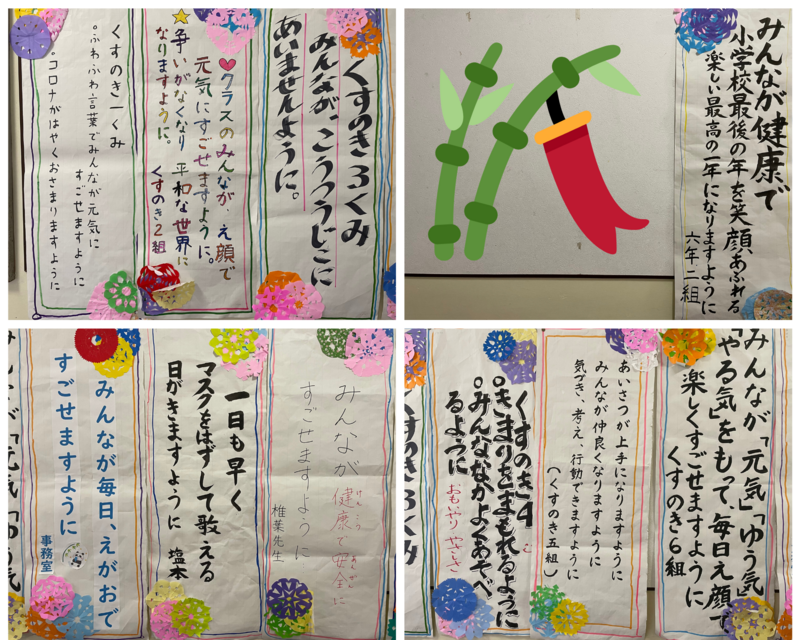 くすのき3くみ
みんなが、こうつうじこに
あいませんように。
♥クラスのみんなが、え顔で
元気にすごせますように。
☆争いがなくなり 平和な世界に
なりますように。 くすのき2組
くすのき一くみ
。ふわふわ言葉でみんなが元気に
すごせますように
。コロナがはやくおさまりますように
みんなが健康で
小学校最後の年を笑顔あふれる
楽しい最高の一年になりますように
六年二組
みんなが健康で安全に
すごせますように
椎葉先生
一日も早く
マスクをはずして歌える
日がきますように 塩本
みんなが毎日、えがおで
すごせますように
事務室
みんなが「元気」「ゆう気」
「やる気」をもって、毎日え顔で
楽しくすごせますように
くすのき6組
あいさつが上手になりますように
みんなが仲良くなりますように
気づき、考え、行動できますように
(くすのき五組)
くすのき4
。きまりをまもれるように
。みんななかよくあそべ
るように おもいやり やさしさ